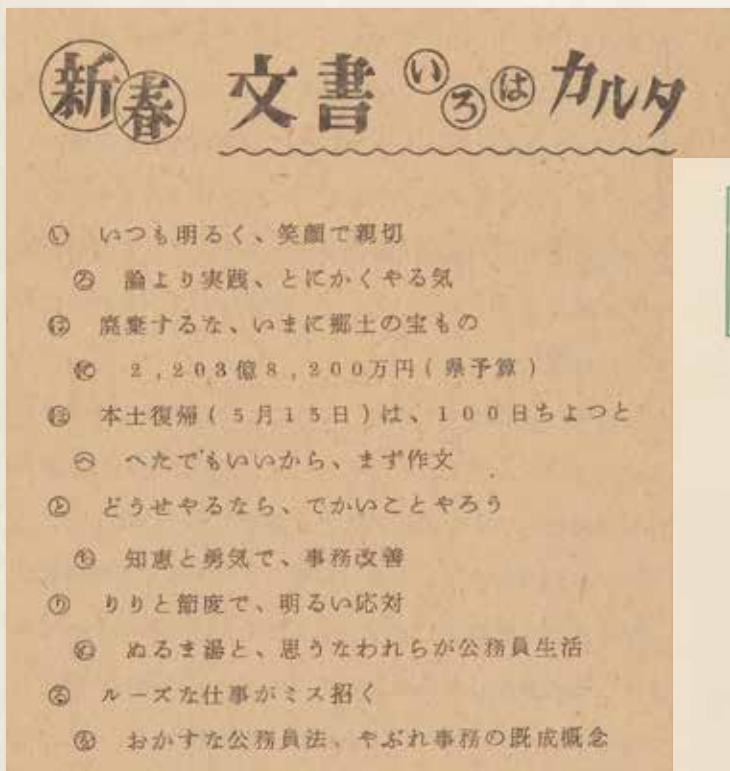 新春 文書 いろは カルタ
い いつも明るく、笑顔で親切
ろ 論より実践、とにかくやる気
は 廃棄するな、いまに郷土の宝もの
に 2,203億8,200万円(県予算)
ほ 本土復帰(5月15日)は、100日ちよつと
へ へたでもいいから、まず作文
と どうせやるなら、でかいことやろう
ち 知恵と勇気で、事務改善
り りりと節度で、明るい応対
ぬ ぬるま湯と、思うなわれらが公務員生活
る ルーズな仕事がミス招く
を おかすな公務員法、やぶれ事務の既成概念